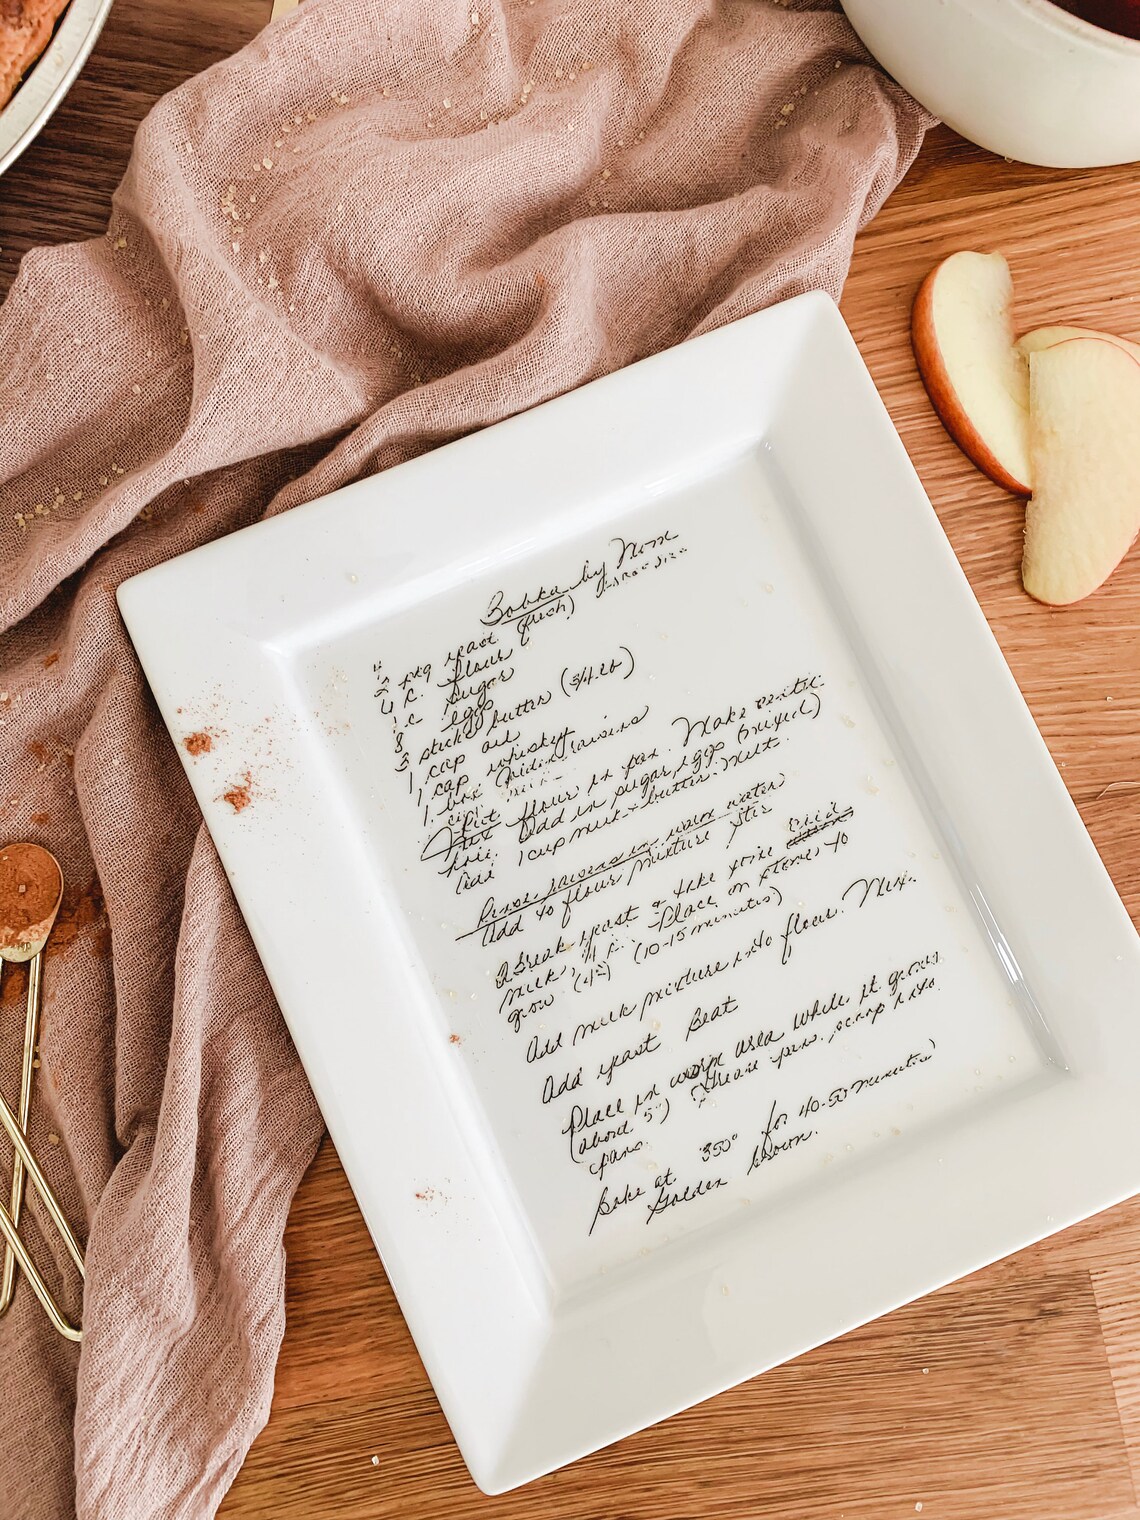 Bobka by Mom
2 pkg yeast (fresh)
4 c. flour
1 c sugar
8 eggs
3 sticks butter (3/4 lb)
1 cap oil
1 cap whiskey
1 box raisins
1 cup milk
flour in pan. Make center
Add in sugar, eggs (mixed)
Add 1 cup milk + butter. Melt.
Rinse raisins in warm water
Add to flour mixture stir
Break yeast
milk, Place on stove to
grow (10-15 minutes)
Add milk mixture into flour. Mix.
Add yeast Beat
Place in warm area while it grows
(about 5") Grease pan. scrap into
pans.
Bake at 350° for 40-50 minutes
Golden brown.